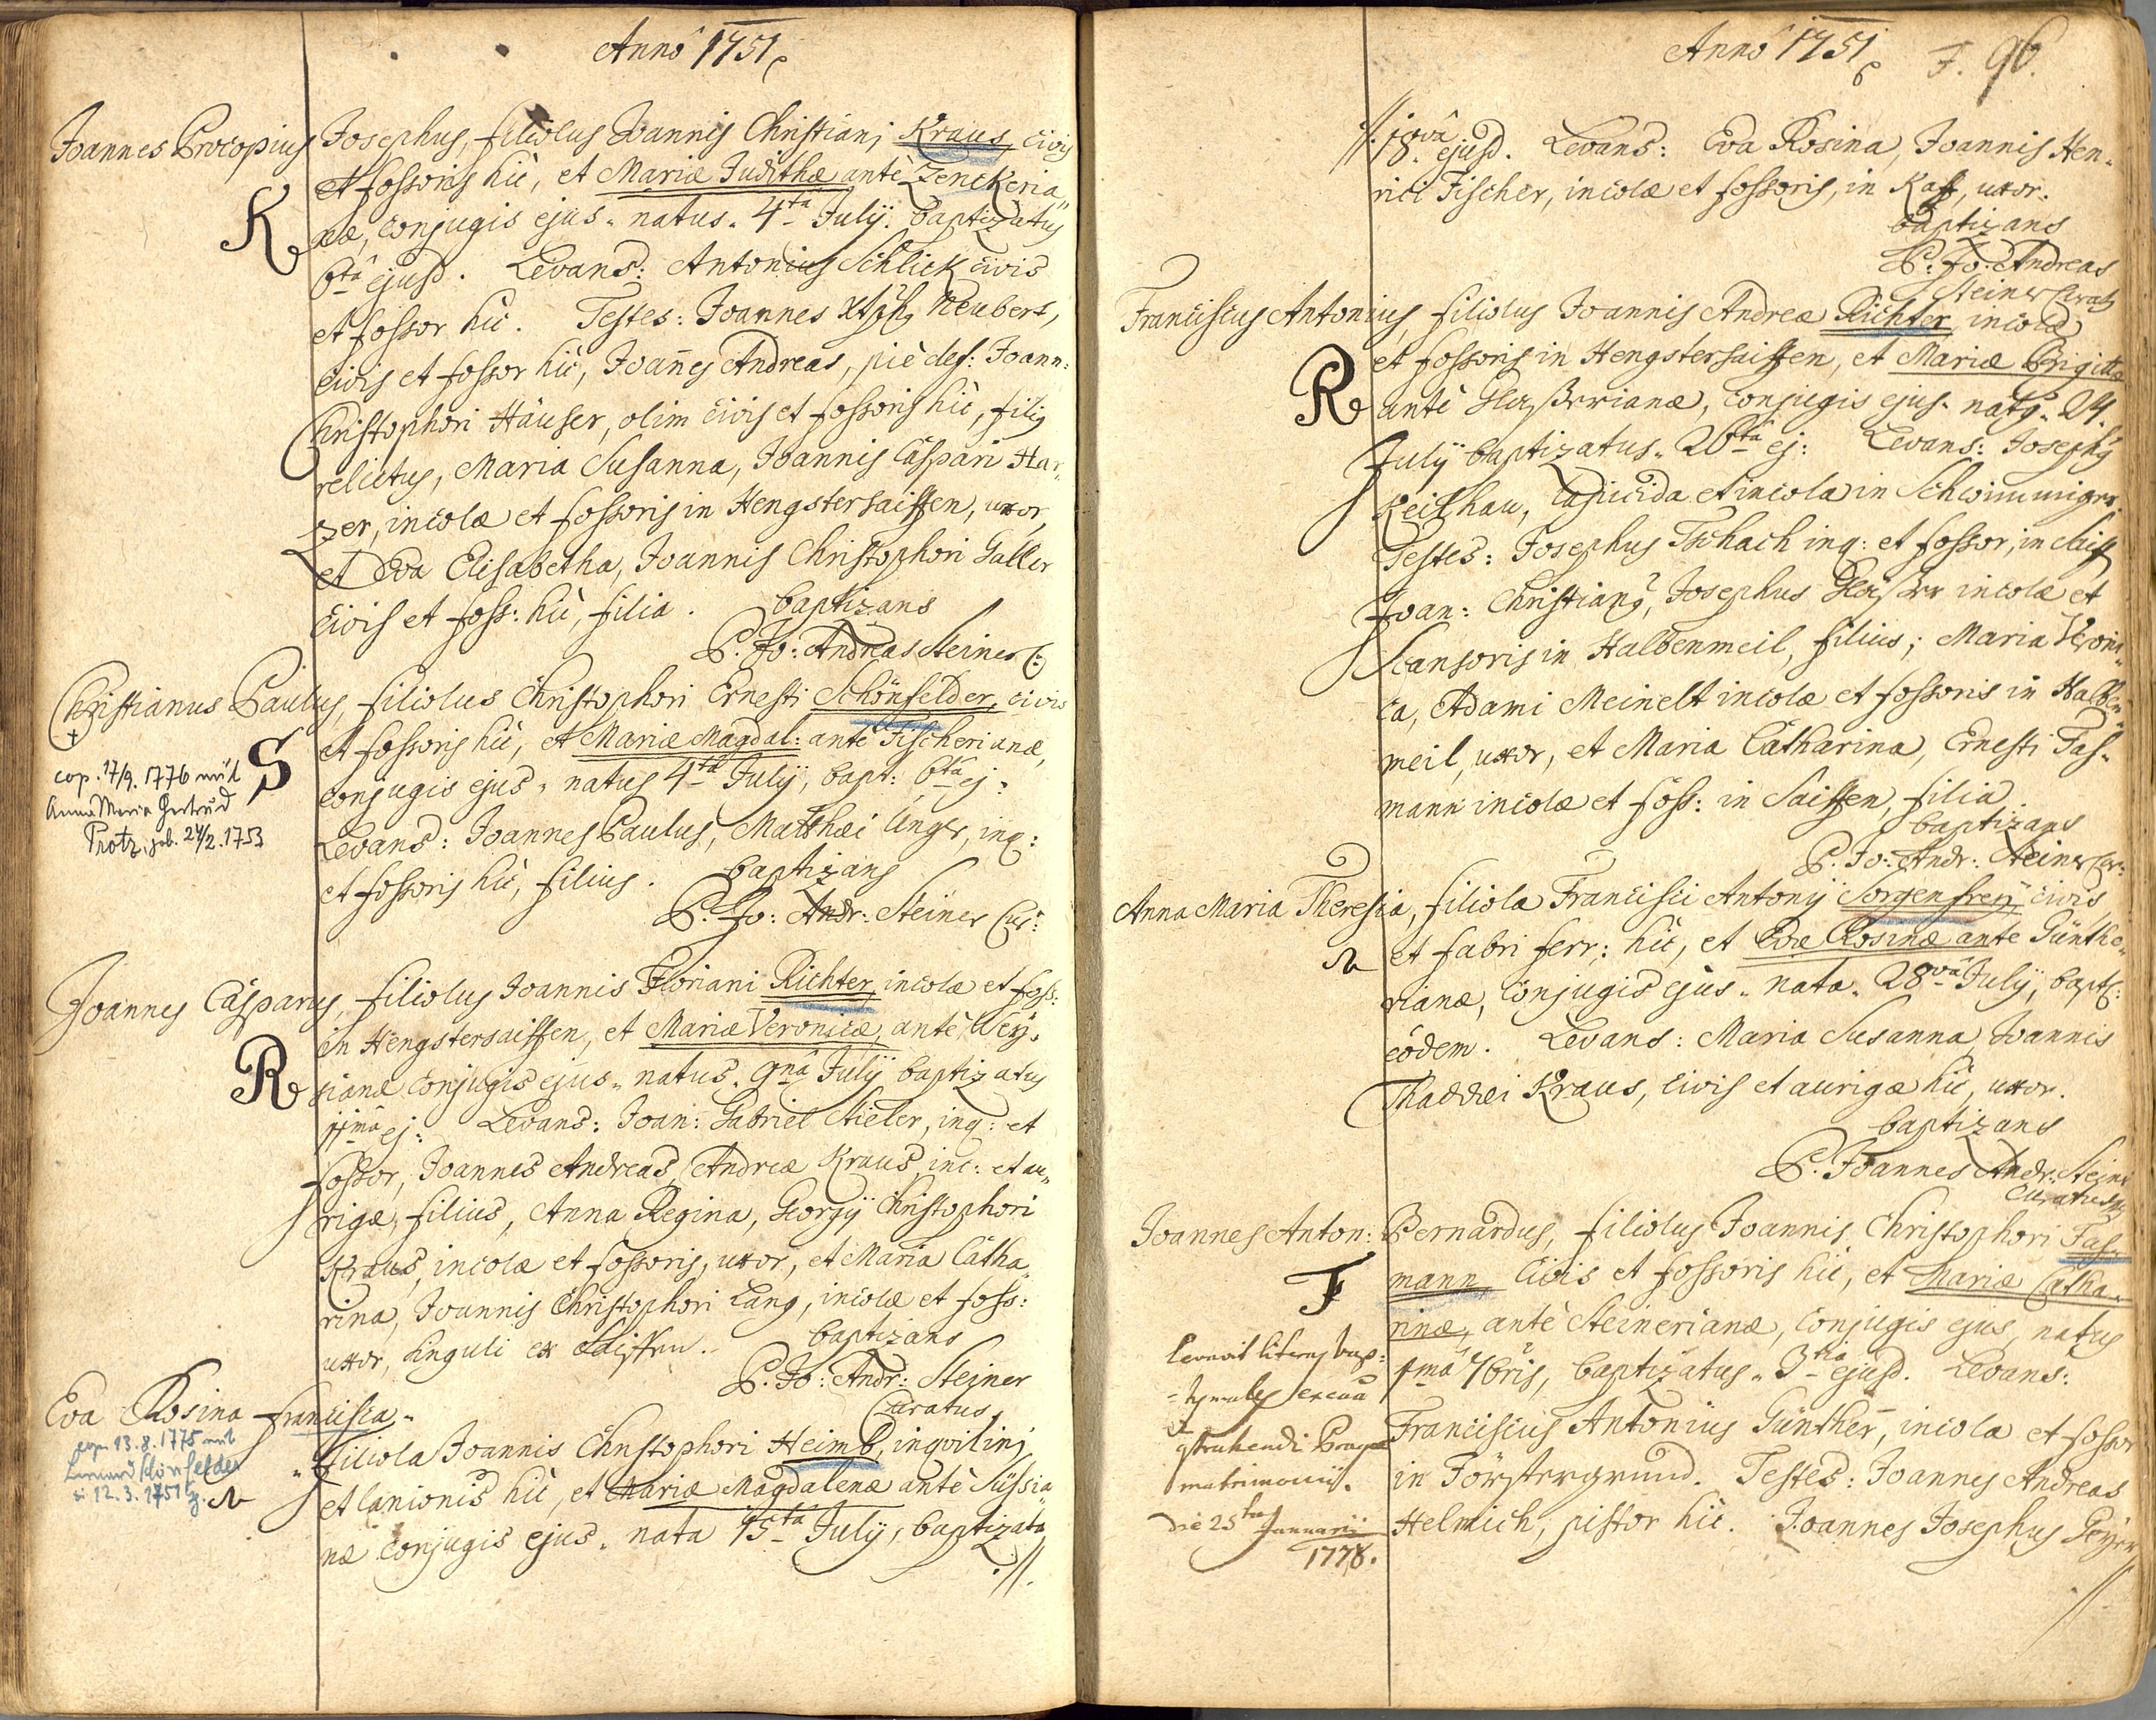 Anno 1751
Joannes Procopius Josephus, filiolus Joannis Christiani Kraus, civis
et fossoris hic, et Mariæ Judithæ antè Zenckeria„
næ, conjugis ejus. natus. 4ta July. baptizatus
K
6ta ejusd. Levans: Antonius Schlick civis
et fossor hic. Testes: Joannes Xtoph Neubert,
civis et fossor hic, Joannes Andreas, piè def: Joann:
Christophori Häuser, olim civis et fossoris hic, filius
relictus, Maria Susanna, Joannis Caspari Har„
zer, incolæ et fossoris in Hengstersaiffen, uxor,
et Eva Elisabetha, Joannis Christophori Galler
civis et foss: hic, filia. baptizans
P. Jo: Andreas Steiner C:
Christianus Paulus, filiolus Christophori Ernesti Schönfelder, civis
et fossoris hic, et Mariæ Magdal: antè Fischerianæ,
S
cop. 17/9. 1776 mit
Anna Maria Gertrud
Protz, geb. 24/2. 1753
conjugis ejus. natus 4ta July, bapt: 6ta ej:
Levans: Joannes Paulus, Matthæi Unger, inq:
et fossoris hic, filius. baptizans
P. Jo: Andr: Steiner Cur:
Joannes Casparus, filiolus Joannis Floriani Richter, incolæ et foss:
in Hengstersaiffen, et Mariæ Veronicæ, antè
R
rianæ conjugis ejus. natus. 9na July baptizatus
11ma ej: Levans: Joan: Gabriel Stieler, inq: et
fossor, Joannes Andreas, Andreæ Kraus, inc: et au„
rigæ, filius, Anna Regina, Georgy Christophori
Kraus, incolæ et fossoris, uxor, et Maria Catha„
rina, Joannis Christophori Lang, incolæ et foss:
uxor, singuli ex Saiffen. baptizans
P. Jo: Andr: Steiner
Curatus
Eva Rosina Francisca.
cop. 13.8.1775 mit
Schönfelder
12.3.1751
filiola Joannis Christophori Heimb, inqvilini
et lanionis hic, et Mariæ Magdalenæ antè Süssia„
næ conjugis ejus. nata 15ta July, baptizata
.//.
Anno 1751 F. 96.
.//. 18va ejusd. Levans: Eva Rosina, Joannis Hen„
rici Fischer, incolæ et fossoris, in Kaff, uxor.
baptizans
P. Jo: Andreas
Steiner Curatus
Franciscus Antonius, filiolus Joannis Andreæ Richter, incolæ
et fossoris in Hengstersaiffen, et Mariæ Brigittæ
R
antè Glaßerianæ, conjugis ejus. natus. 24.
July baptizatus. 26ta ej: Levans: Josephus
Keilhau, lapicida et incola in Schwimmiger.
Testes: Josephus Tschach inq: et fossor, in Saiff
Joan: Christianus, Josephus Glaßer incolæ et
scansoris in Halbenmeil, filius; Maria Veroni„
ca, Adami Meinelt incolæ et fossoris in Halben„
meil, uxor, et Maria Catharina, Ernesti Fas„
mann incolæ et foss: in Saiffen, filia.
baptizans
P. Jo: Andr: Steiner Cur:
Anna Maria Theresia, filiola Francisci Antony Sorgenfrey, civis,
et fabri ferr: hic, et Evæ Rosinæ ante Günthe„
rianæ, conjugis ejus. nata. 28va July, bapt:
eodem. Levans: Maria Susanna, Joannis
Thaddæi Kraus, civis et aurigæ hic, uxor.
baptizans
P. Joannes Andr: Steiner
Curatus
Joannes Anton: Bernardus, filiolus Joannis Christophori Fas„
F
mann, civis et fossoris hic, et Mariæ Catha„
rinæ, antè Steinerianæ, conjugis ejus, natus
1ma 7bris, baptizatus. 3tia ejusd. Levans:
Franciscus Antonius Günther, incola et fossor
in Förstergrund. Testes: Joannes Andreas
Helmich, pistor hic. Joannes Josephus Geyer
.//.
levavit literas bap:
tysmales causa
Pragæ
matrimonii.
Die 25ta Januarii
1778.